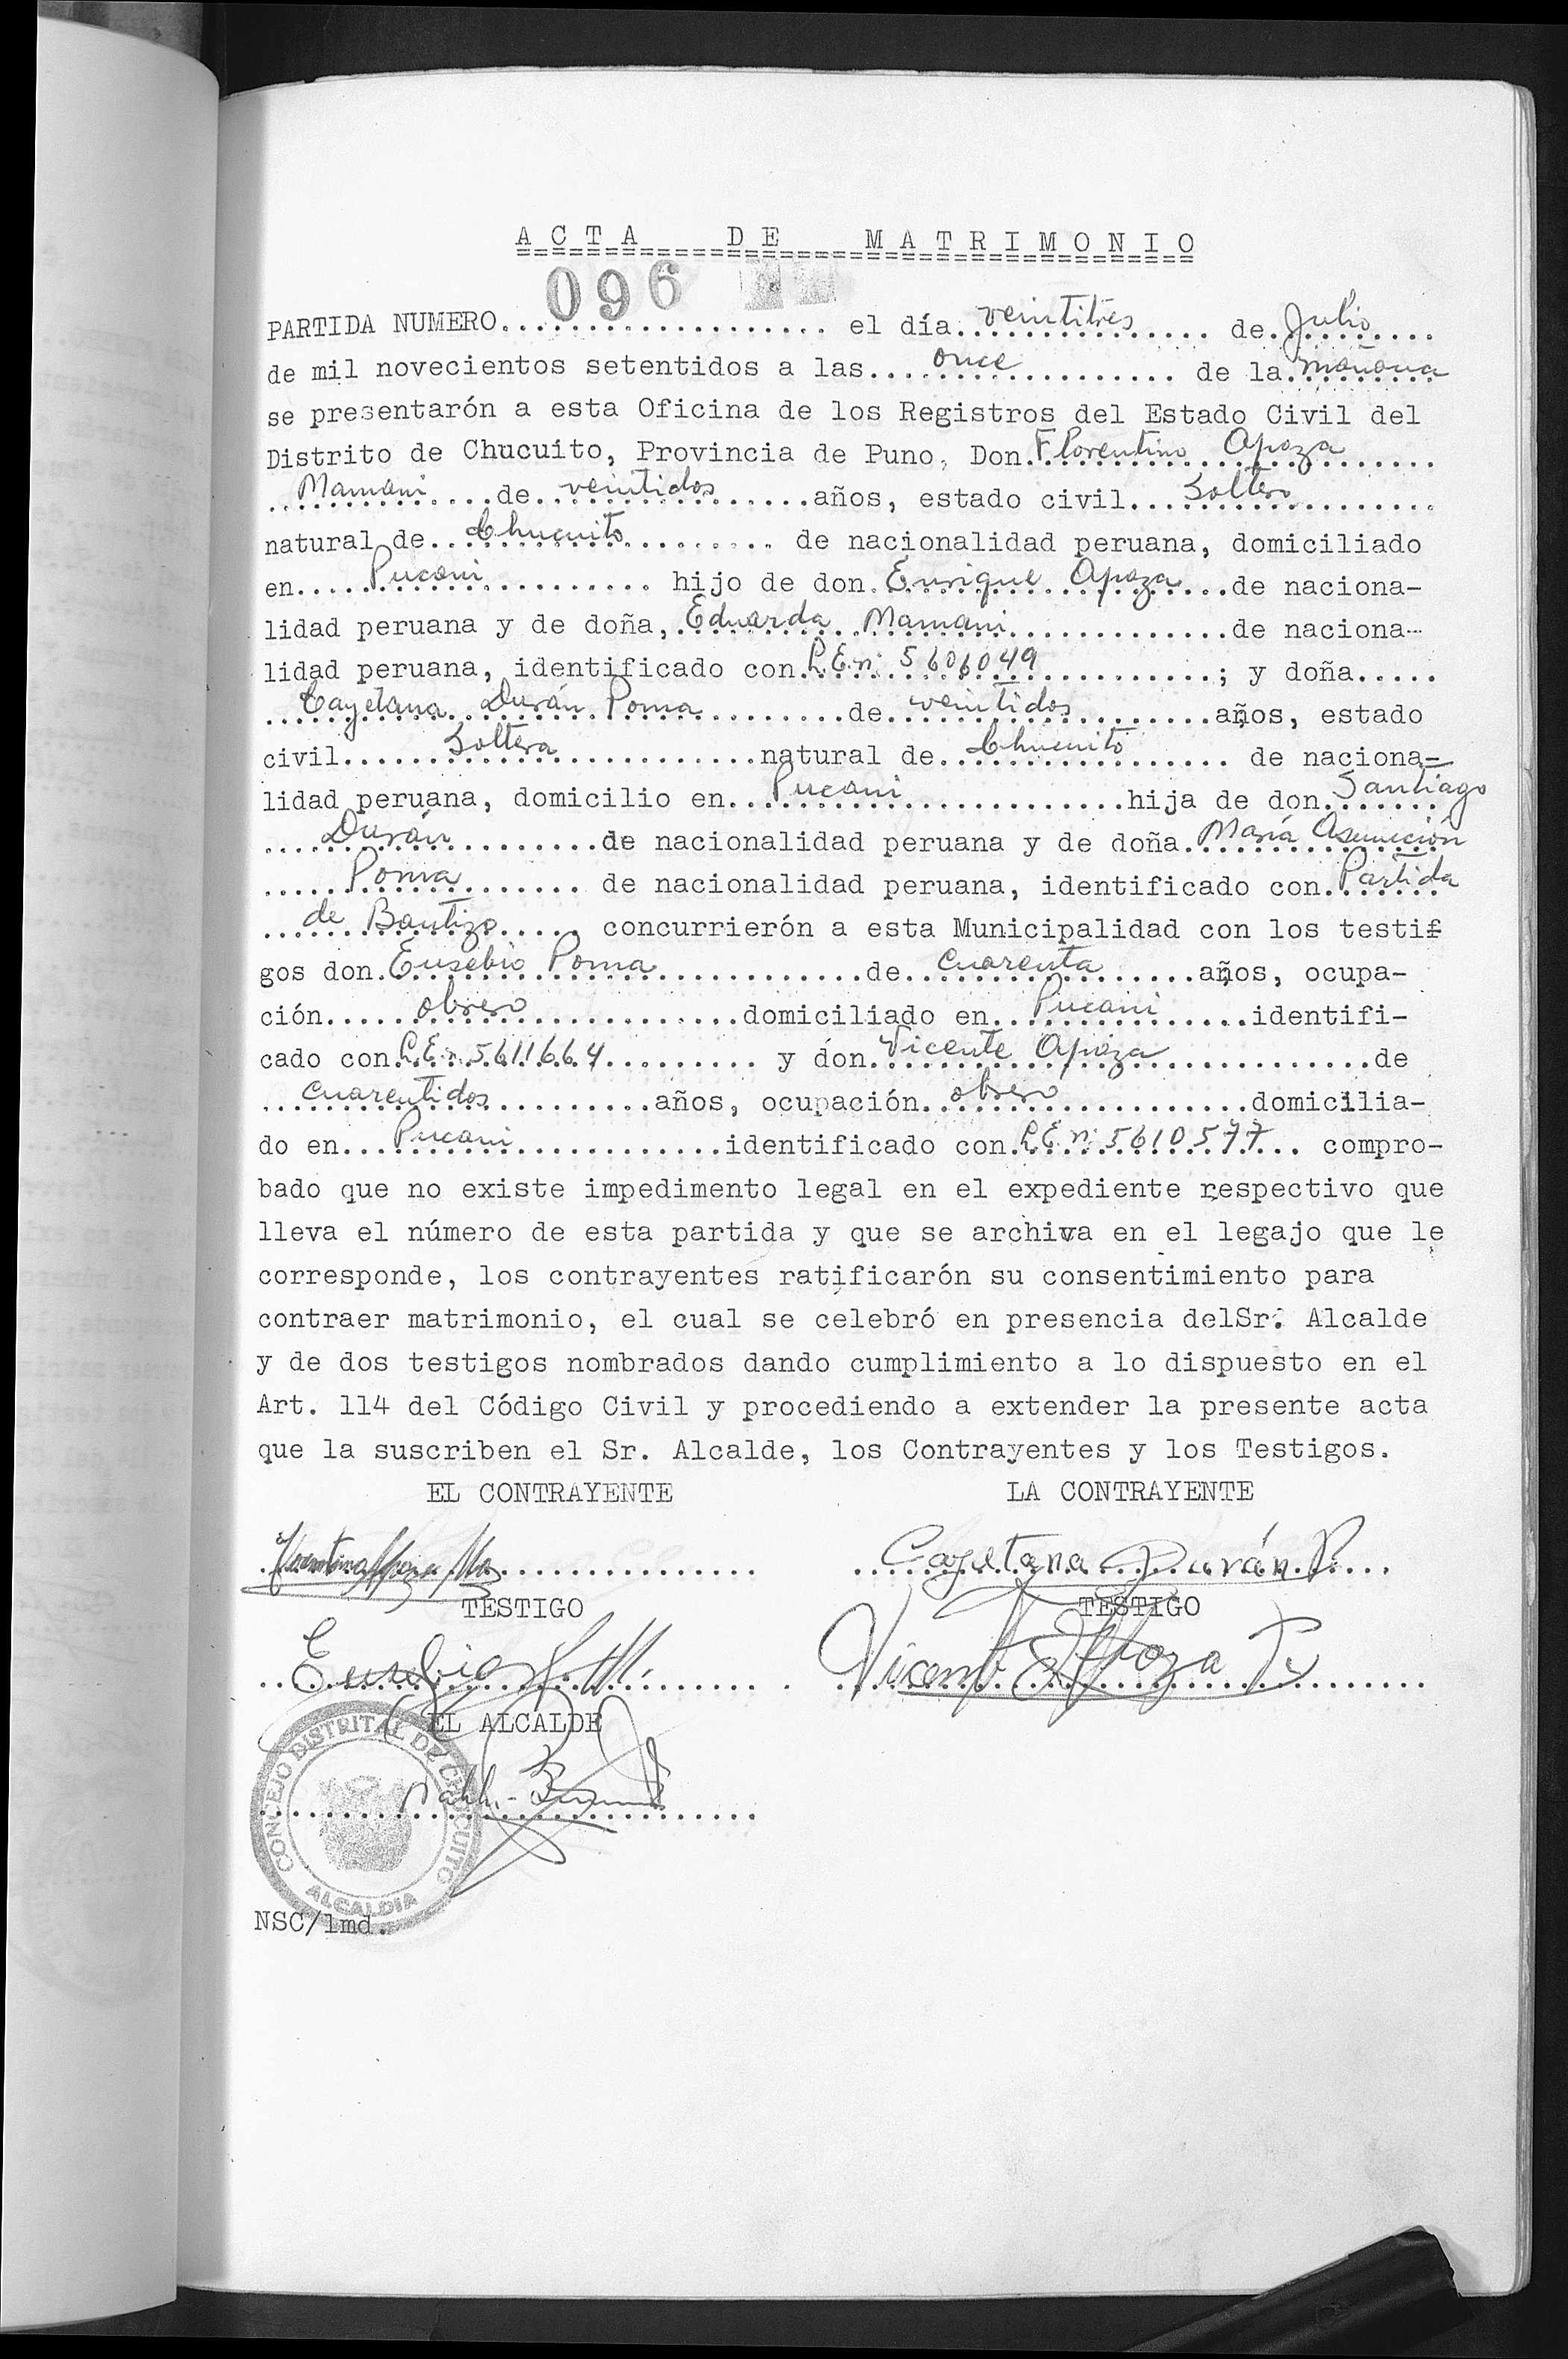 ACTA DE MATRIMONIO
PARTIDA NUMERO. 096 el día veintitres de Julio
de mil novecientos setentidos a las once de la mañana
se presentarón a esta Oficina de los Registros del Estado Civil del
Distrito de Chucuito, Provincia de Puno, Don. Florentino Apaza
Mamani de veintidos años, estado civil Soltero
natural de Chucuito de nacionalidad peruana, domiciliado
en Pucani hijo de don Enrique Apaza de naciona-
lidad peruana y de doña, Eduarda Mamani de naciona-
lidad peruana, identificado con L.E.n: 5606049 ; y doña
Cayetana Durán Poma de veintidos años, estado
civil Soltera natural de Chucuito de naciona-
lidad peruana, domicilio en Pucani hija de don Santiago
Durán de nacionalidad peruana y de doña María Asunción
Poma de nacionalidad peruana, identificado con Partida
de Bautizo concurrierón a esta Municipalidad con los testi
gos don Eusebio Poma de cuarenta años, ocupa-
ción obrero domiciliado en Pucani identifi-
cado con L.E.n. 5611664 y don Vicente Apaza de
cuarentidos años, ocupación obrero domicilia-
do en Pucani identificado con L.E.n: 5610577 compro-
bado que no existe impedimento legal en el expediente respectivo que
lleva el número de esta partida y que se archiva en el legajo que le
corresponde, los contrayentes ratificarón su consentimiento para
contraer matrimonio, el cual se celebró en presencia delSr. Alcalde
y de dos testigos nombrados dando cumplimiento a lo dispuesto en el
Art. 114 del Código Civil y procediendo a extender la presente acta
que la suscriben el Sr. Alcalde, los Contrayentes y los Testigos.
EL CONTRAYENTE LA CONTRAYENTE
Cayetana Durán P.
TESTIGO TESTIGO
Eusebio P. M. Vicente Apoza
EL ALCALDE
CONCEJO DISTRITAL DE CHUCUITO
ALCALDIA
NSC/lmd.